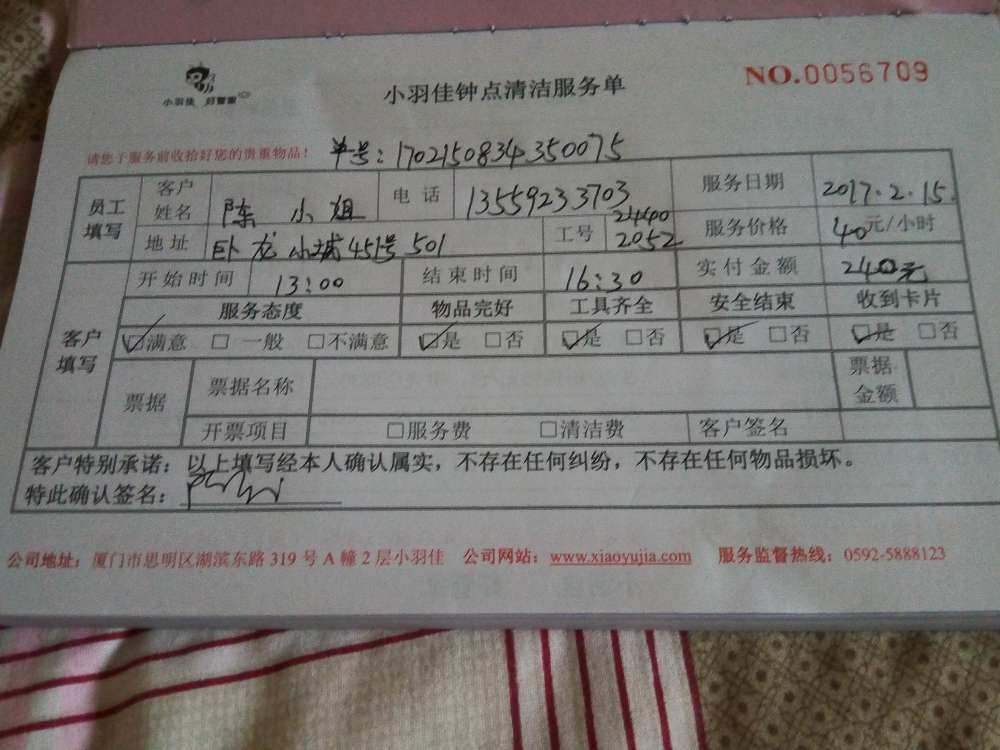 小羽佳 好管家
小羽佳钟点清洁服务单
NO.0056709
请您于服务前收拾好您的贵重物品！ 单号：170215083435​0075
员工填写 客户姓名 陈小姐 电话 13559233703 服务日期 2017.2.15.
地址 卧龙小城451号501 工号 24400 2052 服务价格 40元/小时
客户填写 开始时间 13:00 结束时间 16:30 实付金额 240元
服务态度 物品完好 工具齐全 安全结束 收到卡片
☑满意 □一般 □不满意 ☑是 □否 ☑是 □否 ☑是 □否 ☑是 □否
票据 票据名称 票据金额
开票项目 □服务费 □清洁费 客户签名
客户特别承诺：以上填写经本人确认属实，不存在任何纠纷，不存在任何物品损坏。
特此确认签名：
公司地址：厦门市思明区湖滨东路319号A幢2层小羽佳 公司网站：www.xiaoyujia.com 服务监督热线：0592-5888123